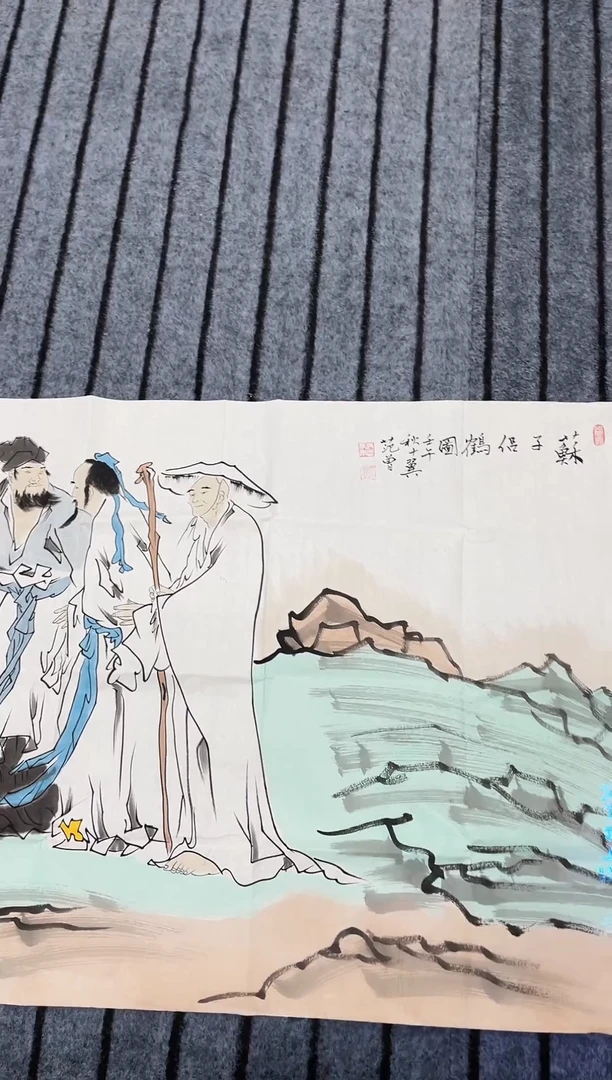 蘇子侶鶴圖
壬午
秋十翼
范曾